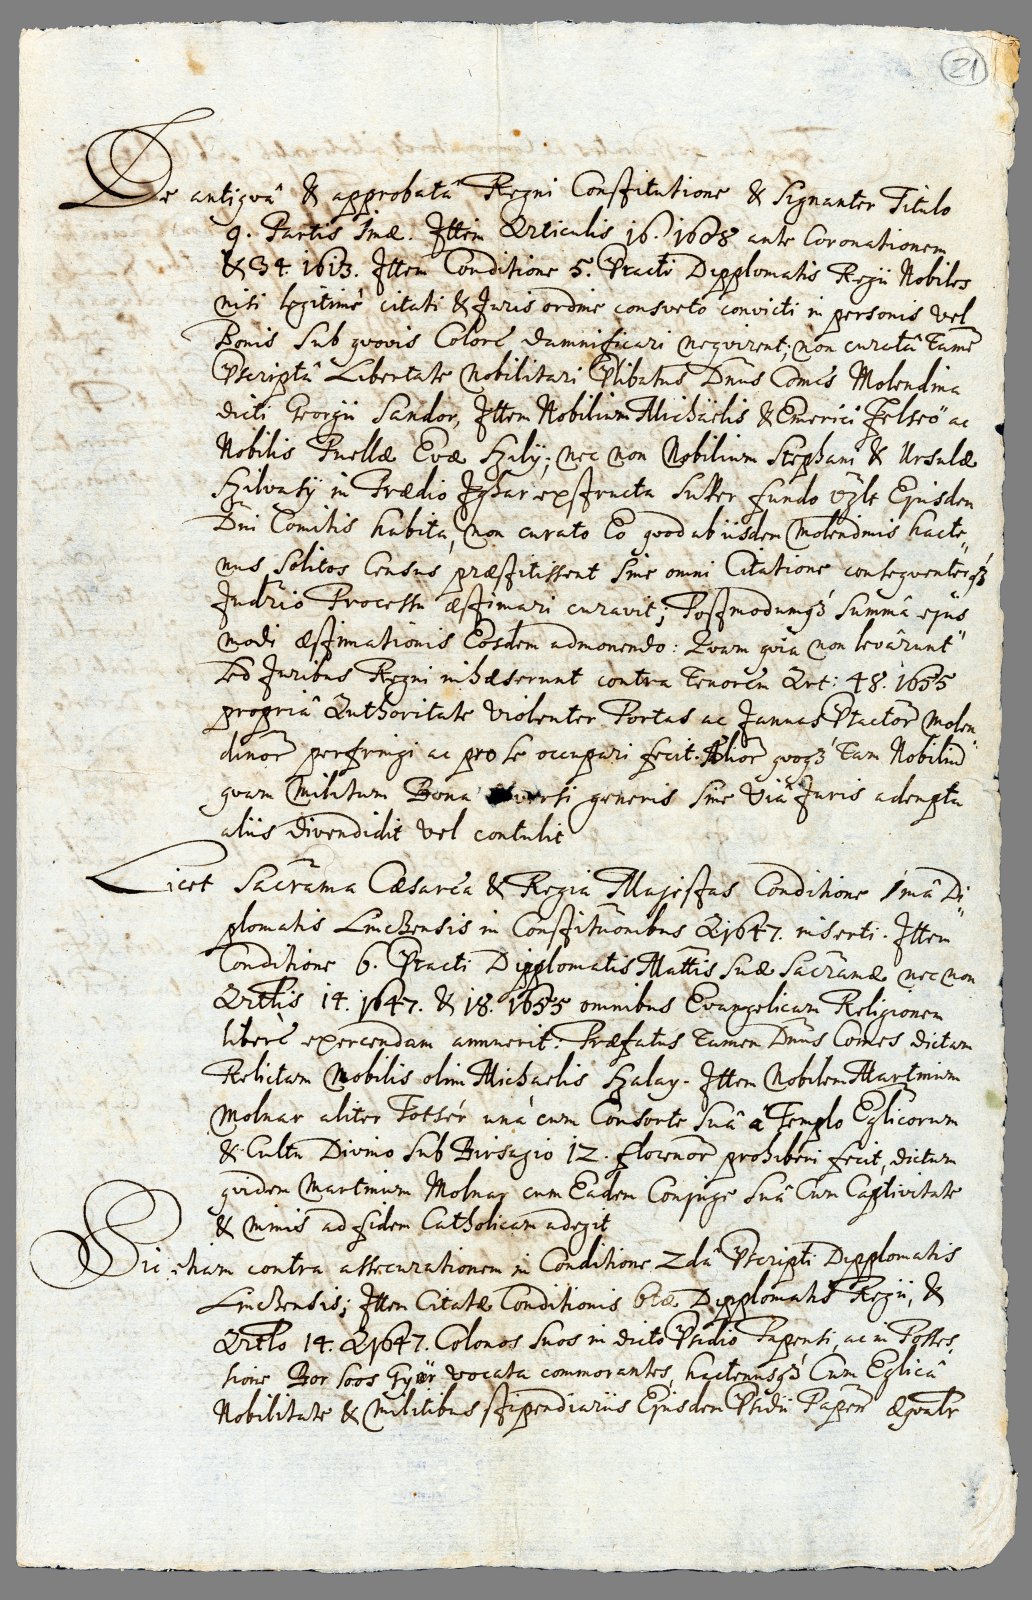 21
De antiqvâ & approbatâ Regni Constitutione & Signanter Titulo
9. Partis 1mæ. Ittem Articulis 16. 1608 ante Coronationem
& 34. 1613. Ittem Conditione 5. Practi Dipplomatis Regii Nobiles
nisi legitimè citati & Juris ordine consveto convicti in personis vel
Bonis Sub qvovis Colore damnificari neqvirent; non curatâ tamẽ
Pscriptâ Libertate Nobilitari Plibatus Dnũs Comes Molendina
dicti Georgii Sandor, Ittem Nobilium Michäelis & Emerici Felseö ac
Nobilis Puellæ Evæ Szily; nec non Nobilium Stephani & Ursulæ
Szilvasÿ in Prædio Ighar exstructa Super fundo Ejusdem
Dñi Comitis habita, non curato Eo qvod ab iisdem Molendinis hacte„
nus Solitos Census præstitissent Sine omni Citatione conseqventerqȝ
Judrio Processu æstimari curavit; Postmodumqȝ Summâ ejus
modi æstimationis Eosdem admonendo: Qvam qvia non levârunt
Sed Juribus Regni inhæserunt contra tenorem Art: 48. 1655
propriâ Authoritate violenter Portas ac Januas Ptactor̃ Molen„
dinor̃ perfringi ac pro se occupari fecit. Alior̃ qvoqȝ tam Nobiliũ
qvam Militum Bona diversi generis Sine Viâ Juris adempta
aliis divendidit vel contulit
Licet Sacrãma Cæsarea & Regia Majestas Conditione 1mâ Di„
plomatis Linczensis in Constitũonibus A 1647. inserti. Ittem
Conditione 6. Practi Dipplomatis Mattis Suæ Sacrãmæ nec non
Artlis 14. 1647. & 18. 1655 omnibus Evangelicam Religionem
liberè exercendam annuerit: Præfatus tamen Dnũs Comes dictam
Relictam Nobilis olim Michaelis Szalay. Ittem Nobilem Martinum
Molnar aliter Fottsér unà cum Consorte Suâ à Templo Eglicorum
& Cultu Divino Sub Birsagio 12. florenor̃ prohiberi fecit, dictum
qvidem Martinum Molnar cum Eadem Conjuge Suâ Cum Captivitate
& minis ad fidem Catholicam adegit
Sic etiam contra assecurationem in Conditione 2dâ Pscripti Dipplomatis
Linczensis; Ittem Citatæ Conditionis 6tæ Dipplomatis Regii, &
Artlo 14. A 1647. Colonos Suos in dicto Psidio Papensi, ac in Posses„
sione Bor Soos Győr vocata commorantes, hactenusqȝ Cum Eglicâ
Nobilitate & Militibus stipendiariis Ejusdem Psidii Papeñ æqvalr